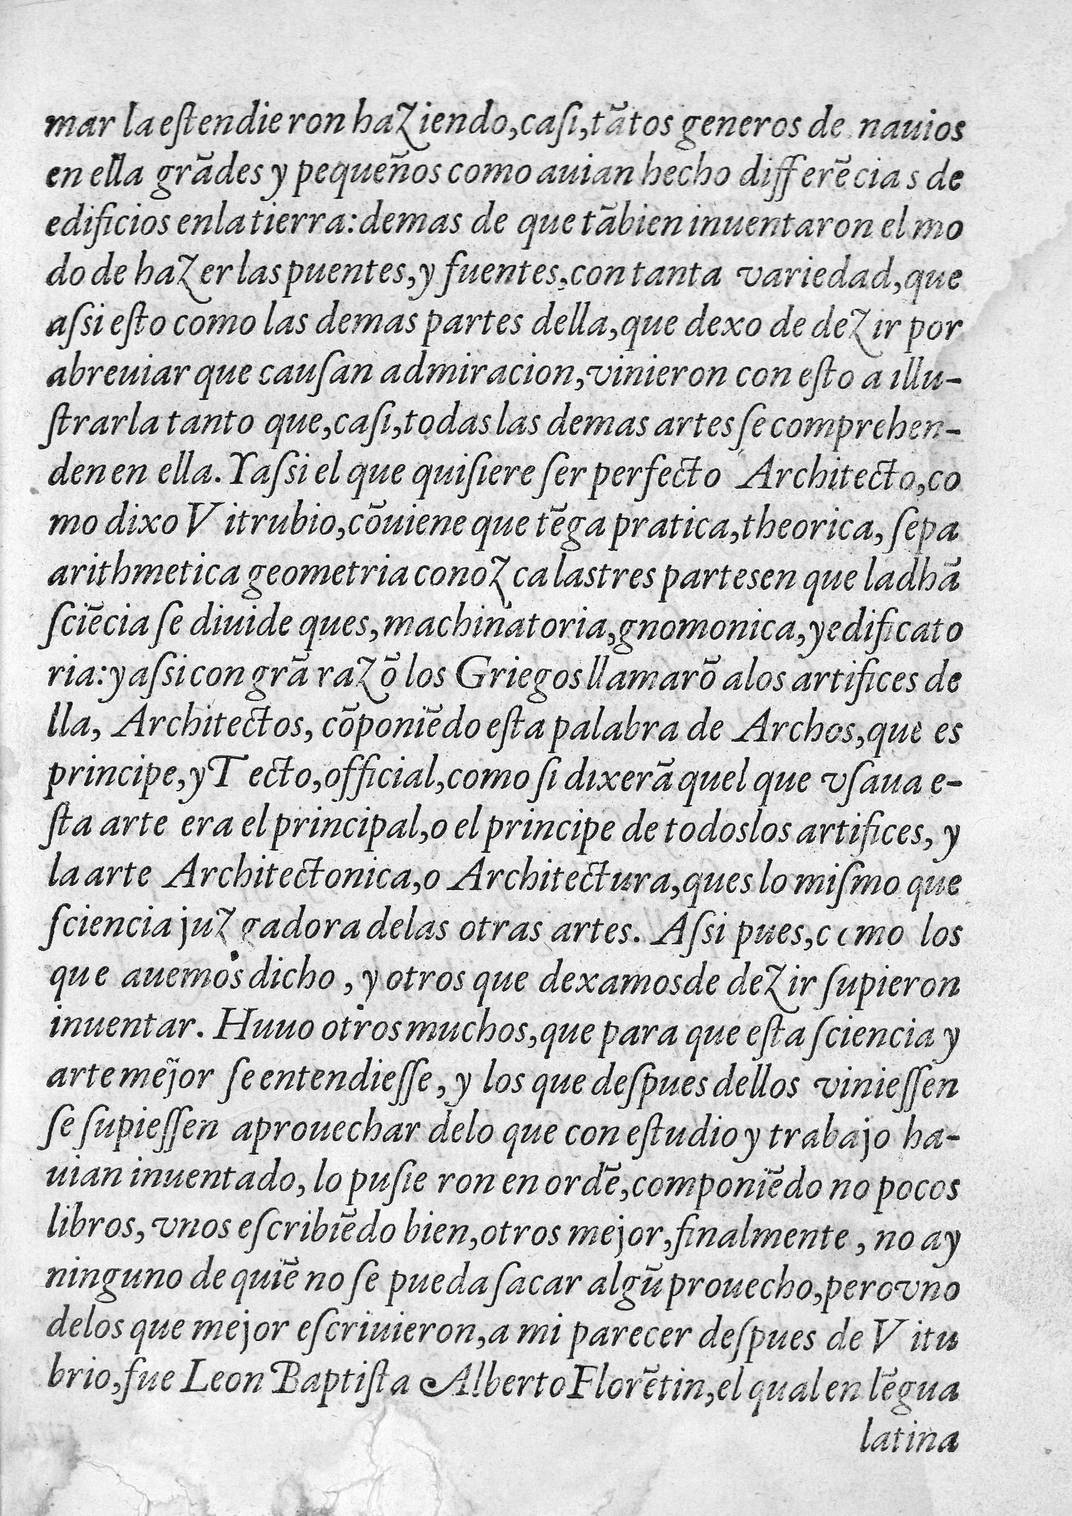 mar la eſtendieron haziendo,caſi,tātos generos de nauios
en ella grādes y pequeños como auian hecho differēcias de
edificios enla tierra: demas de que tābien inuentaron el mo
do de hazer las puentes,y fuentes,con tanta variedad,que
aſsi eſto como las demas partes della,que dexo de dezir por
abreuiar que cauſan admiracion,vinieron con eſto a illu-
ſtrarla tanto que,caſi,todas las demas artes ſe comprehen-
den en ella. Y aſsi el que quiſiere ſer perfecto Architecto,co
mo dixo Vitrubio,cōuiene que tēga pratica,theorica, ſepa
arithmetica geometria conozca las tres partes en que la dhā
ſciēcia ſe diuide ques,machinatoria,gnomonica,y edificato
ria:y aſsi con grā razō los Griegos llamarō alos artifices de
lla, Architectos, cōponiēdo eſta palabra de Archos,que es
principe,y Tecto,official,como ſi dixerā quel que vſaua e-
ſta arte era el principal,o el principe de todos los artifices, y
la arte Architectonica,o Architectura,ques lo miſmo que
ſciencia juzgadora delas otras artes. Aſsi pues,como los
que auemos dicho , y otros que dexamos de dezir ſupieron
inuentar. Huuo otros muchos,que para que eſta ſciencia y
arte mejor ſe entendieſſe, y los que deſpues dellos vinieſſen
ſe ſupieſſen aprouechar delo que con eſtudio y trabajo ha-
uian inuentado, lo puſieron en ordē,componiēdo no pocos
libros, vnos eſcribiēdo bien,otros mejor,finalmente , no ay
ninguno de quiē no ſe pueda ſacar algū prouecho,pero vno
delos que mejor eſcriuieron,a mi parecer deſpues de Vitu
brio,fue Leon Baptiſta Alberto Florētin,el qual en lēgua
latina